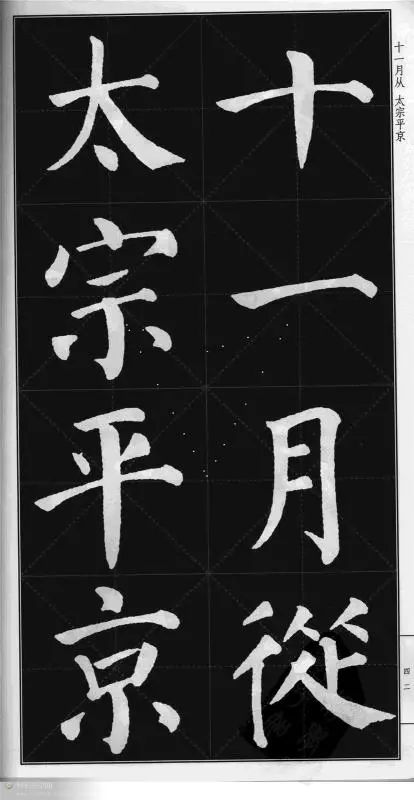 十一月從
太宗平京
十一月从 太宗平京
四二